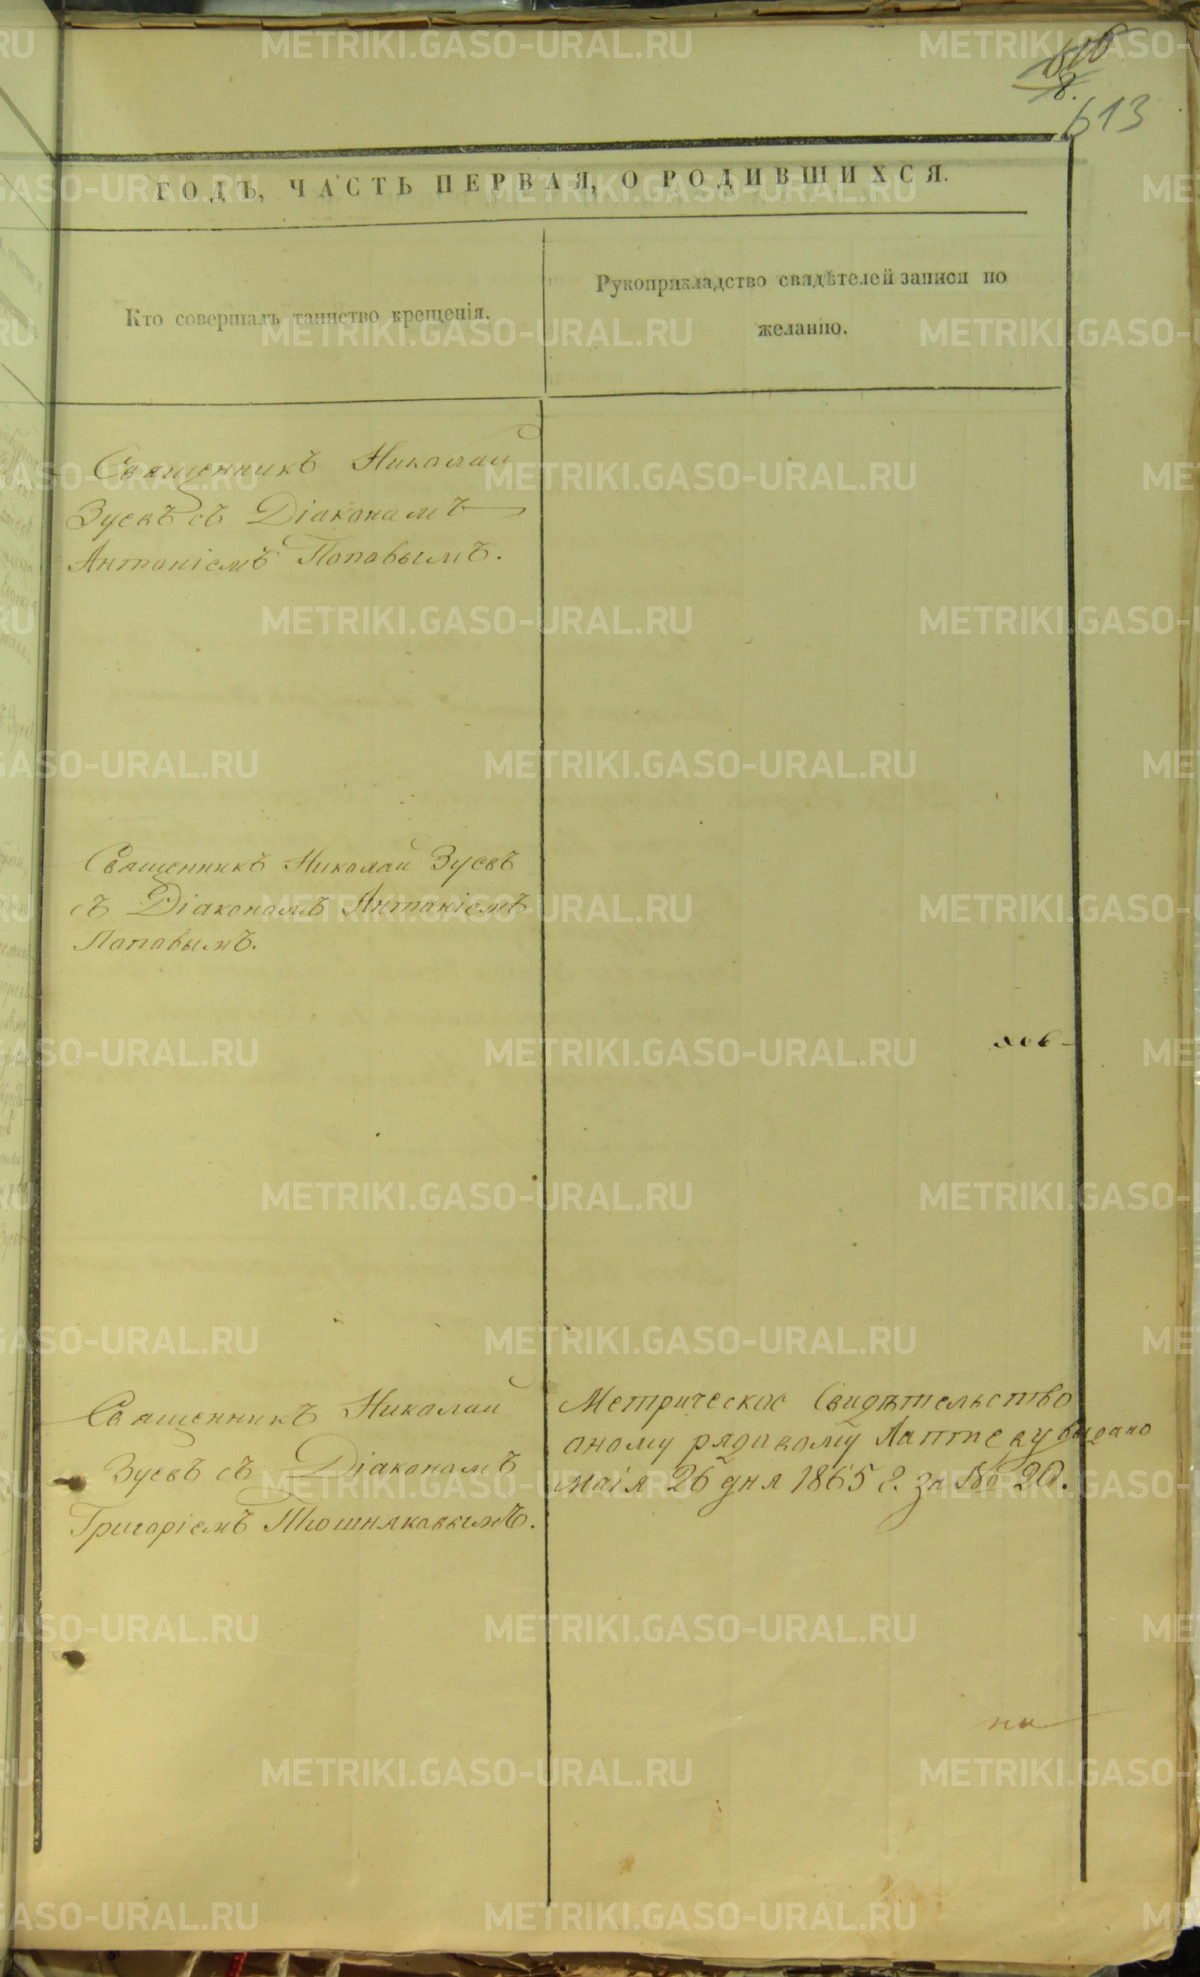 8.
613
ГОДЪ, ЧАСТЬ ПЕРВАЯ, О РОДИВШИХСЯ.
Кто совершалъ таинство крещенія.
Рукоприкладство свидѣтелей записи по
желанію.
Священникъ Николай
Зуевъ съ Діакономъ
Антоніемъ Поповымъ.
Священникъ Николай Зуевъ
съ Діакономъ Антоніемъ
Поповымъ.
Священникъ Николай
Зуевъ съ Діакономъ
Григоріемъ
Метрическое Свидѣтельство
оному рядовому Лаптеву выдано
маія 26 дня 1865 г. за № 20.
по
METRIKI.GASO-URAL.RU